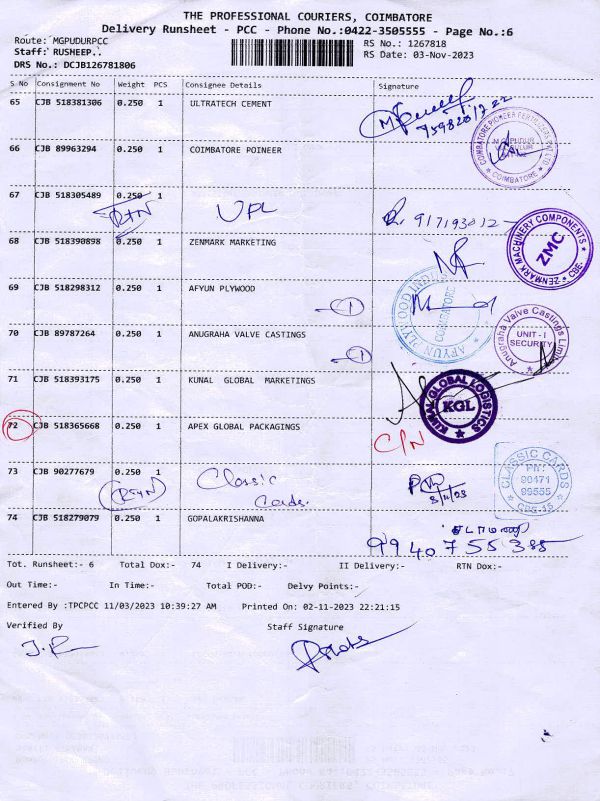 THE PROFESSIONAL COURIERS, COIMBATORE
Delivery Runsheet - PCC - Phone No.:0422-3505555 - Page No.:6
Route: MGPUDURPCC
RS No.: 1267818
Staff: RUSHEEP..
RS Date: 03-Nov-2023
DRS No.: DCJB126781806
S No Consignment No Weight PCS Consignee Details Signature
65 CJB 518381306 0.250 1 ULTRATECH CEMENT
66 CJB 89963294 0.250 1 COIMBATORE POINEER
COIMBATORE PIONEER FERTILIZERS PVT LTD
COIMBATORE
67 CJB 518305489 0.250 1
RTN UPL
68 CJB 518390898 0.250 1 ZENMARK MARKETING
ZENMARK MACHINERY COMPONENTS
ZMC
CBE
69 CJB 518298312 0.250 1 AFYUN PLYWOOD
1
AFYUN PLYWOOD
COIMBATORE
70 CJB 89787264 0.250 1 ANUGRAHA VALVE CASTINGS
1
Anugraha Valve Castings Limited
UNIT-I
SECURITY
71 CJB 518393175 0.250 1 KUNAL GLOBAL MARKETINGS
KUNAL GLOBAL LOGISTICS
KGL
72 CJB 518365668 0.250 1 APEX GLOBAL PACKAGINGS
C/N
73 CJB 90277679 0.250 1
Classic
Cards.
CLASSIC CARDS
PH:
90471
99555
CBE-15
74 CJB 518279079 0.250 1 GOPALAKRISHANNA
9940755385
Tot. Runsheet:- 6 Total Dox:- 74 I Delivery:- II Delivery:- RTN Dox:-
Out Time:- In Time:- Total POD:- Delvy Points:-
Entered By :TPCPCC 11/03/2023 10:39:27 AM Printed On: 02-11-2023 22:21:15
Verified By Staff Signature